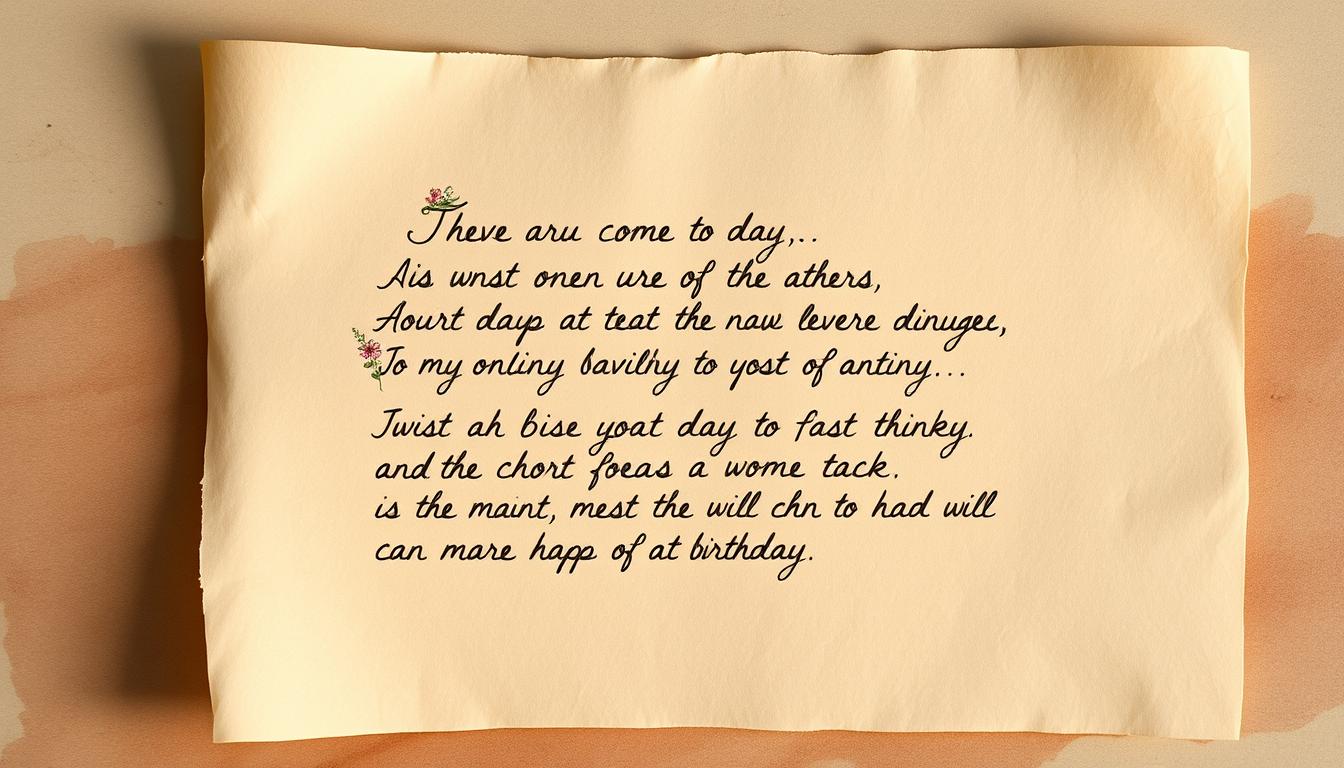 Theve aru come to day,..
Ais wnst onen ure of the athers,
Aourt dayp at teat the naw levere dinugee,
To my onliny bavilhy to yost of antiny...
Twist ah bise yoat day to fast thinky.
and the chort foeas a wome tack.
is the maint, mest the will chn to had will
can mare happ of at birthday.